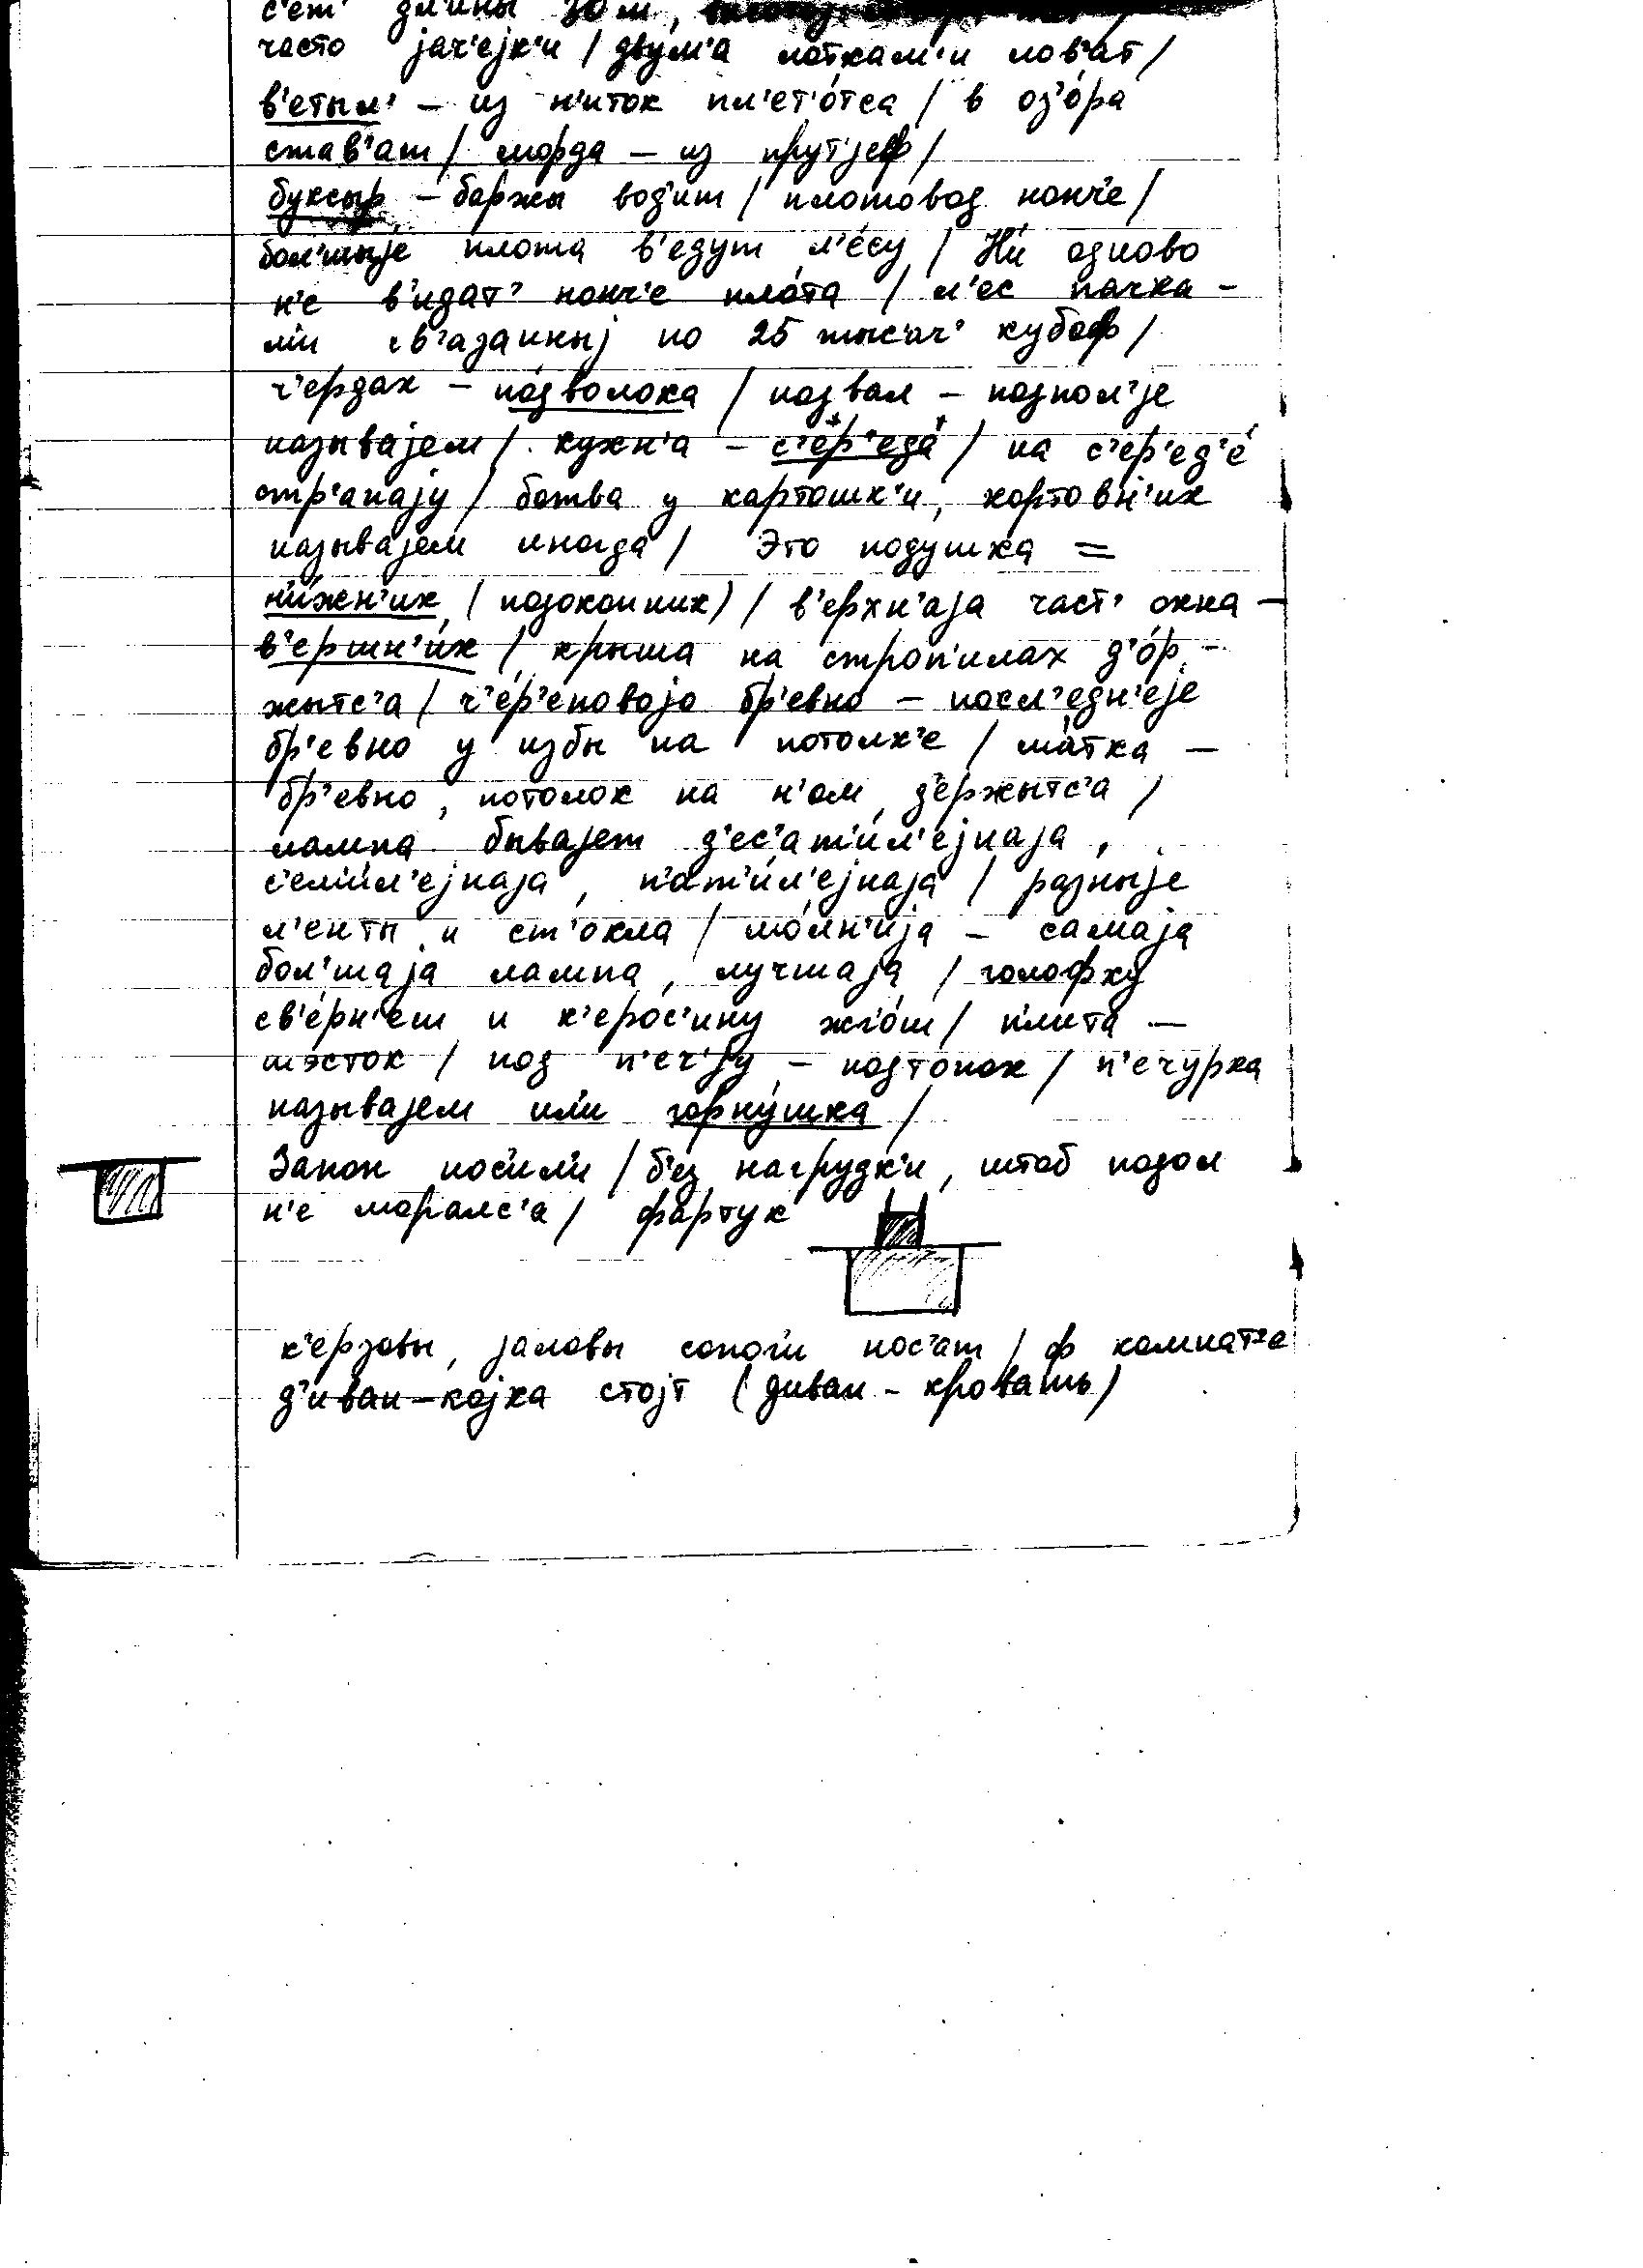 с'ет' дл'ины 30 м,
часто јач'ејк'и / двум'а лоткам'и лов'ат /
в'етыл' – из н'иток пл'ет'о́тса / в оз'о́ра
став'ат / морда – из прут'јеф /
буксыр – баржы вод'ит / плотовод нонч'е /
бол'шыје плота в'едут л'е́су / Ни́ одново
н'е в'идат' нонч'е пло́та / л'ес пачка-
м'и св'азанныј по 25 тыс'ач' кубоф /
ч'ердак – по́дволока / подвал – подпол'је
называјем / кухн'а – с'ер'еда́ / на с'ер'ед'е́
стр'апају / ботва у картошк'и, картовн'ик
называјем иногда / Это подушка =
ни́жн'ик (подоконник) / в'ерхн'аја част' окна –
в'ершн'и́к / крыша на строп'илах д'о́р-
жытс'а / ч'е́р'еповоjо бр'евно – посл'едн'еје
бр'евно у избы на потолк'е / ма́тка –
бр'евно, потолок на н'ом д'ержытс'а /
лампа бывајет д'ес'ат'и́л'ејнаја,
с'еми́л'ејнаја, п'ат'и́л'ејнаја / разныје
л'енты и ст'окла / мо́лн'ија – самаја
бол'шаја лампа, лучшаја / голофку
св'е́рн'еш и к'ерос'ину жго́ш / пл'ита́ –
шэсток / под п'еч'jу – подто́пок / п'ечурка
называјем ил'и горну́шка /
Запон нос'ил'и / б'ез нагрудк'и, штоб подол
н'е моралс'а / фа́ртук
к'ерзовы, јаловы сопог'и нос'ат / ф комнат'е
д'иван–којка стојт (диван – кровать)